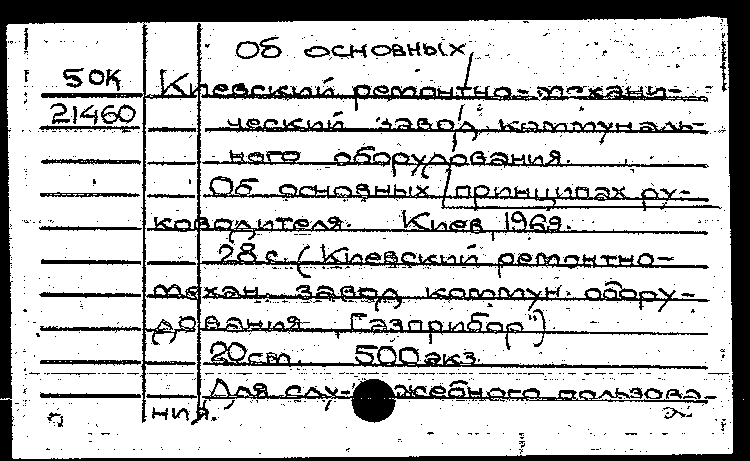 Об основных
50К
Киевский ремонтно-механи-
21460
ческий завод коммуналь-
ного оборудования.
Об основных принципах ру-
ководителя. Киев, 1969.
28 с. (Киевский ремонтно-
механ. завод коммун. обору-
дования "Газприбор")
20 см. 500 экз.
Для слу- жебного пользова-
ния.